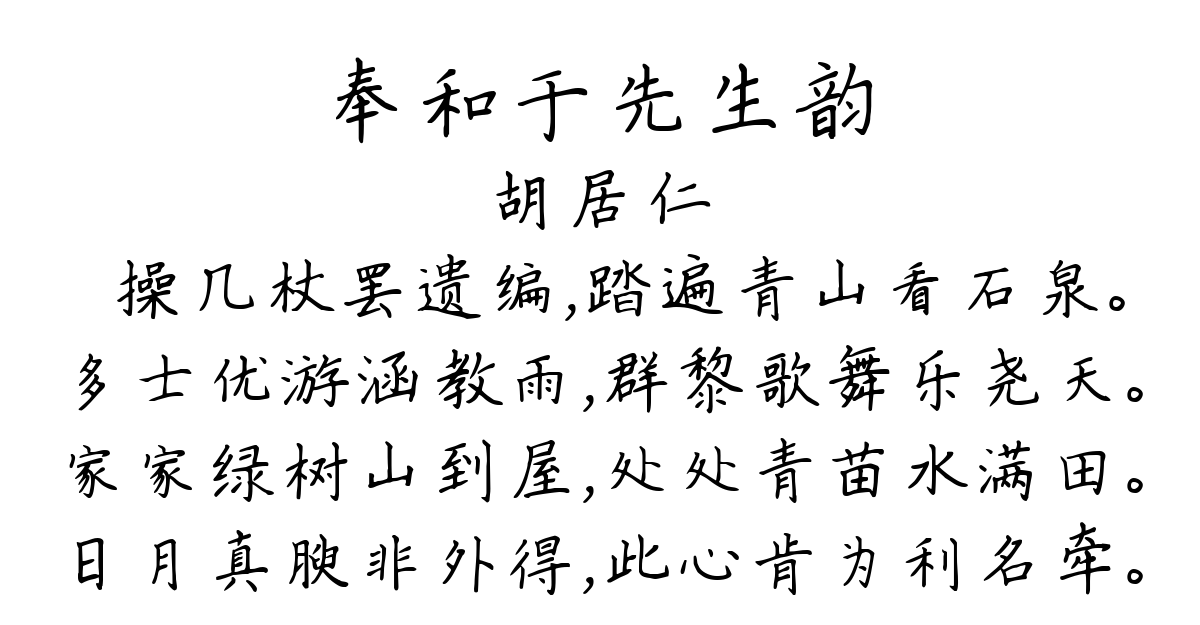 奉和于先生韵
胡居仁
操几杖罢遗编,踏遍青山看石泉。
多士优游涵教雨,群黎歌舞乐尧天。
家家绿树山到屋,处处青苗水满田。
日月真腴非外得,此心肯为利名牵。